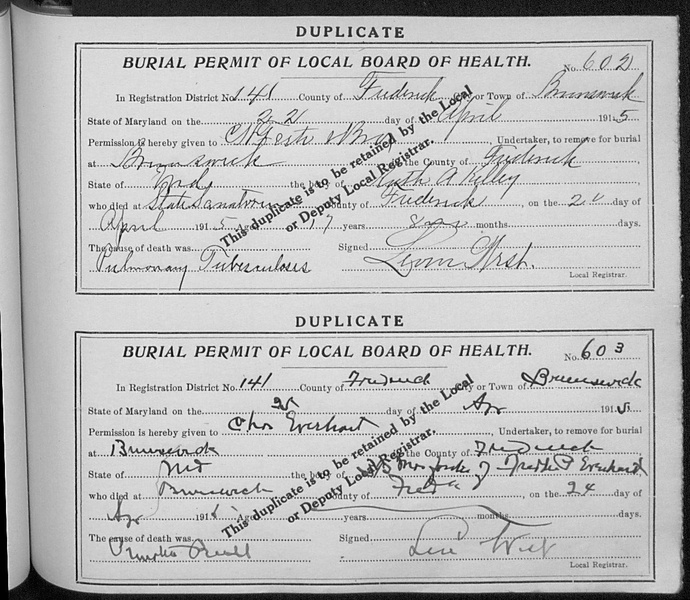 DUPLICATE
BURIAL PERMIT OF LOCAL BOARD OF HEALTH.
No. 602
In Registration District No. 141 County of Frederick or Town of Brunswick
State of Maryland on the 22 day of April 1915
Permission is hereby given to & Bro Undertaker, to remove for burial
at Brunswick the County of Frederick
State of the body of Ruth A Kelley
who died at State Sanatorium County of Frederick, on the day of
April 1915 Age 17 years months days.
The cause of death was Signed
Pulmonary Tuberculosis
Local Registrar.
This duplicate is to be retained by the Local
or Deputy Local Registrar.
DUPLICATE
BURIAL PERMIT OF LOCAL BOARD OF HEALTH.
No. 603
In Registration District No. 141 County of Frederick or Town of Brunswick
State of Maryland on the day of Apr 1915
Permission is hereby given to Chas Everhart Undertaker, to remove for burial
at Brunswick the County of Frederick
State of Md the body of of Everhart
who died at Brunswick County of Fredk, on the 24 day of
Apr 191 Age years months days.
The cause of death was Signed
Local Registrar.
This duplicate is to be retained by the Local
or Deputy Local Registrar.